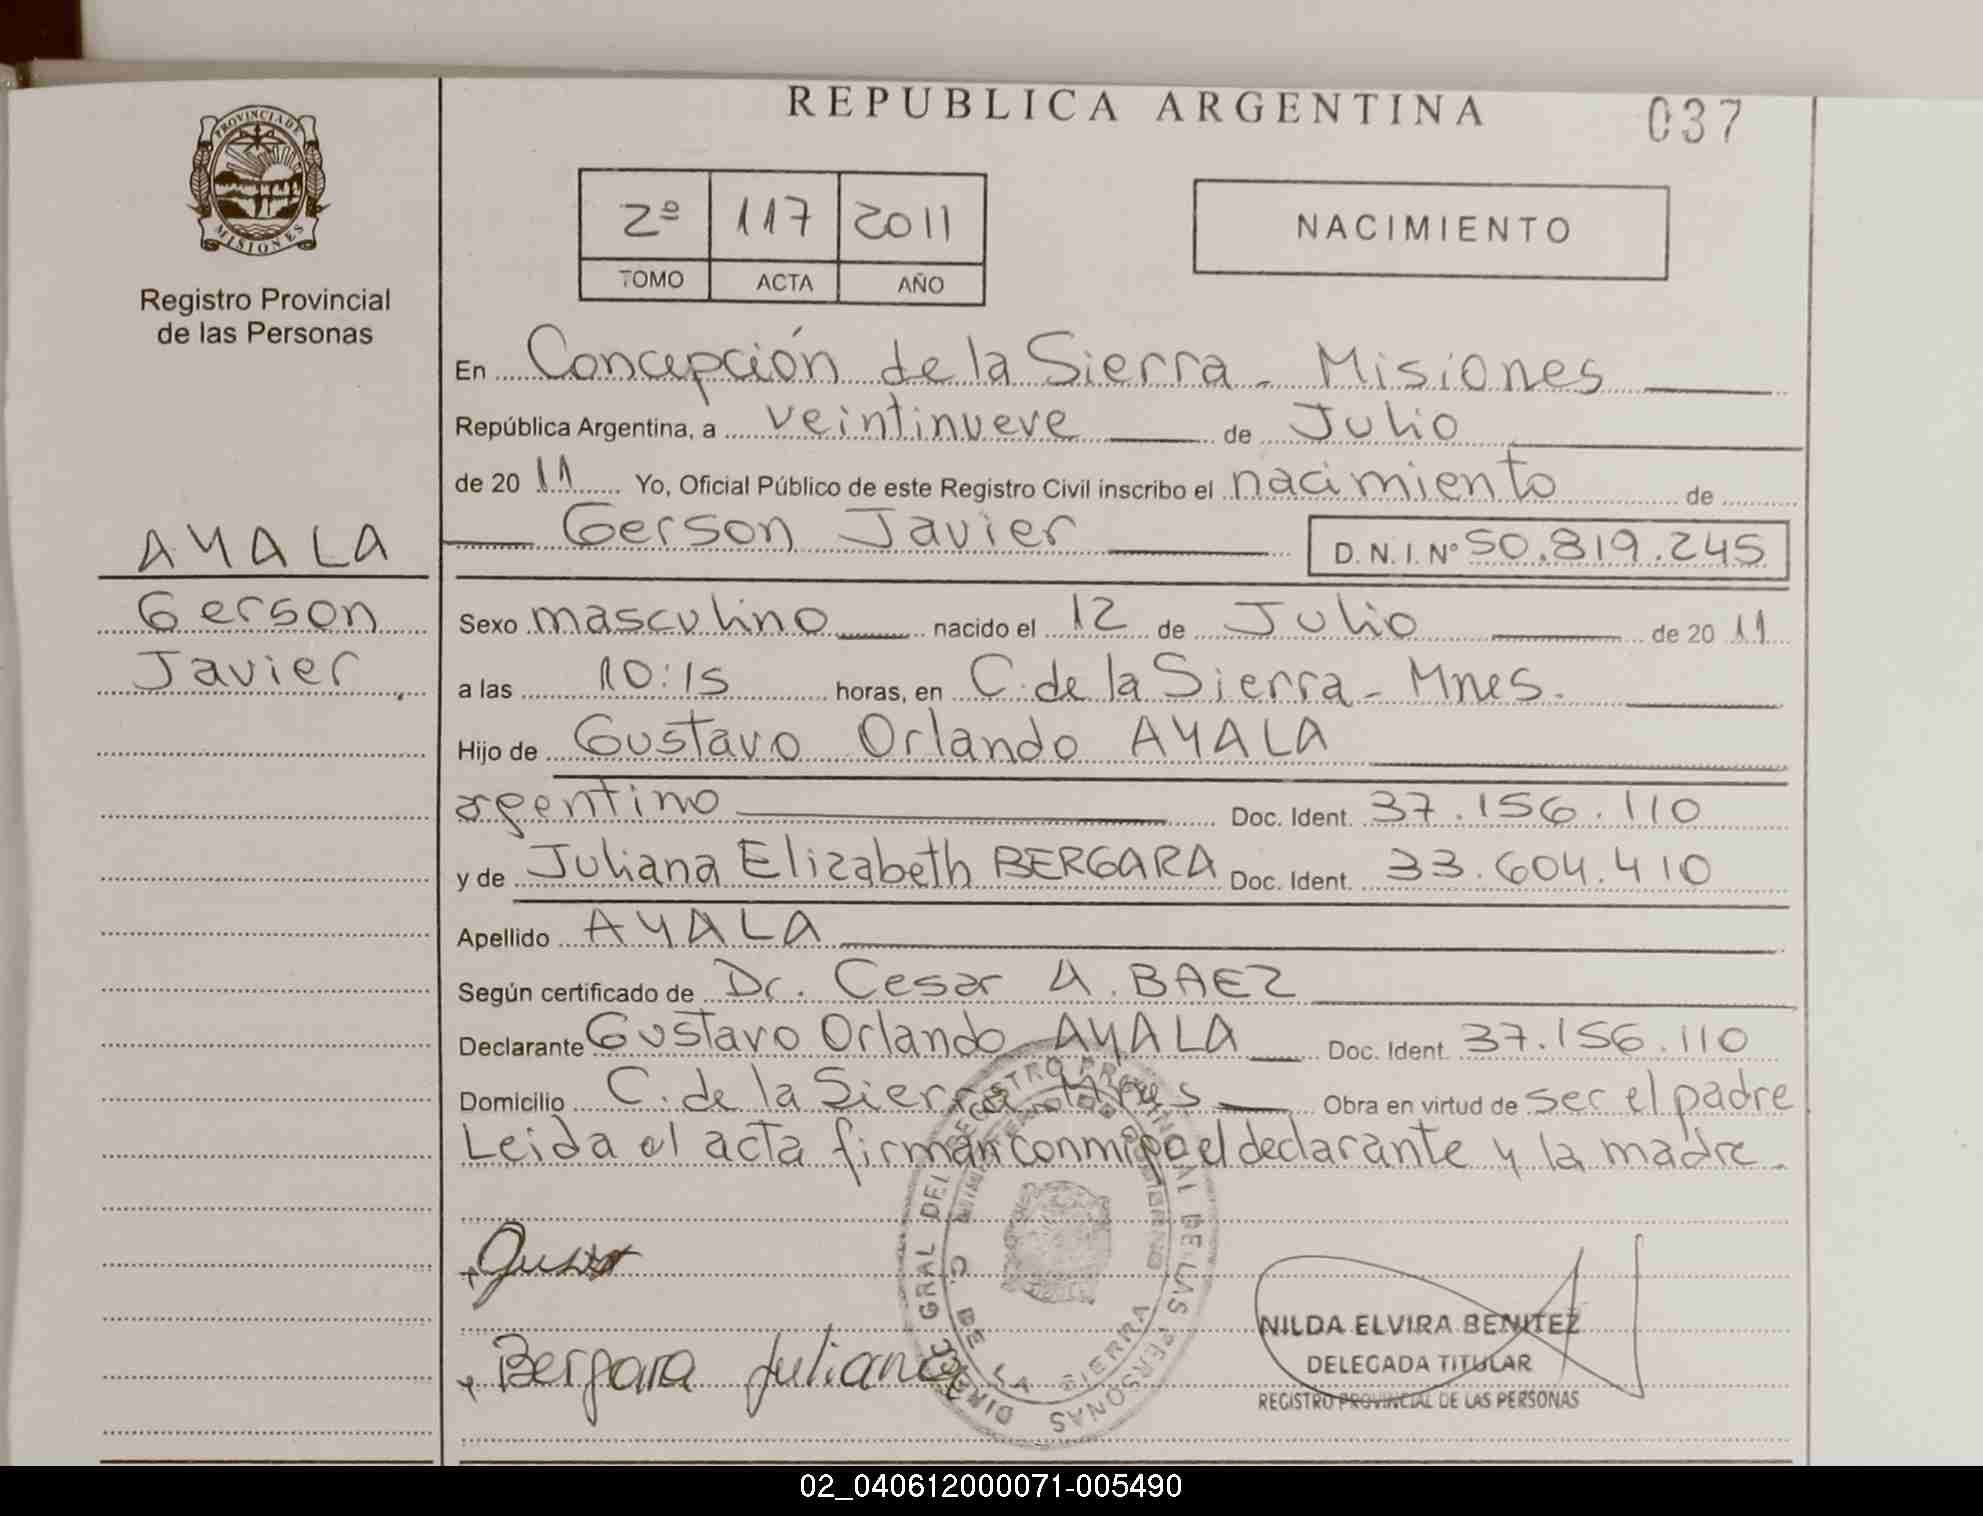 REPUBLICA ARGENTINA
037
PROVINCIA DE
MISIONES
Registro Provincial
de las Personas
2º 117 2011
TOMO ACTA AÑO
NACIMIENTO
En Concepción de la Sierra - Misiones
República Argentina, a veintinueve de Julio
de 20 11 Yo, Oficial Público de este Registro Civil inscribo el nacimiento de
Gerson Javier D. N. I. Nº 50.819.245
AYALA
Gerson
Javier.
Sexo masculino nacido el 12 de Julio de 20 11
a las 10:15 horas, en C. de la Sierra - Mnes.
Hijo de Gustavo Orlando AYALA
argentino Doc. Ident. 37.156.110
y de Juliana Elizabeth BERGARA Doc. Ident. 33.604.410
Apellido AYALA
Según certificado de Dr. Cesar A. BAEZ
Declarante Gustavo Orlando AYALA Doc. Ident. 37.156.110
Domicilio C. de la Sierra Mnes Obra en virtud de ser el padre
Leida el acta firman conmigo el declarante y la madre.
Bergara Juliana
GRAL DEL REGISTRO PROVINCIAL DE LAS PERSONAS
C. DE LA SIERRA
NILDA ELVIRA BENITEZ
DELEGADA TITULAR
REGISTRO PROVINCIAL DE LAS PERSONAS
02_040612000071-005490